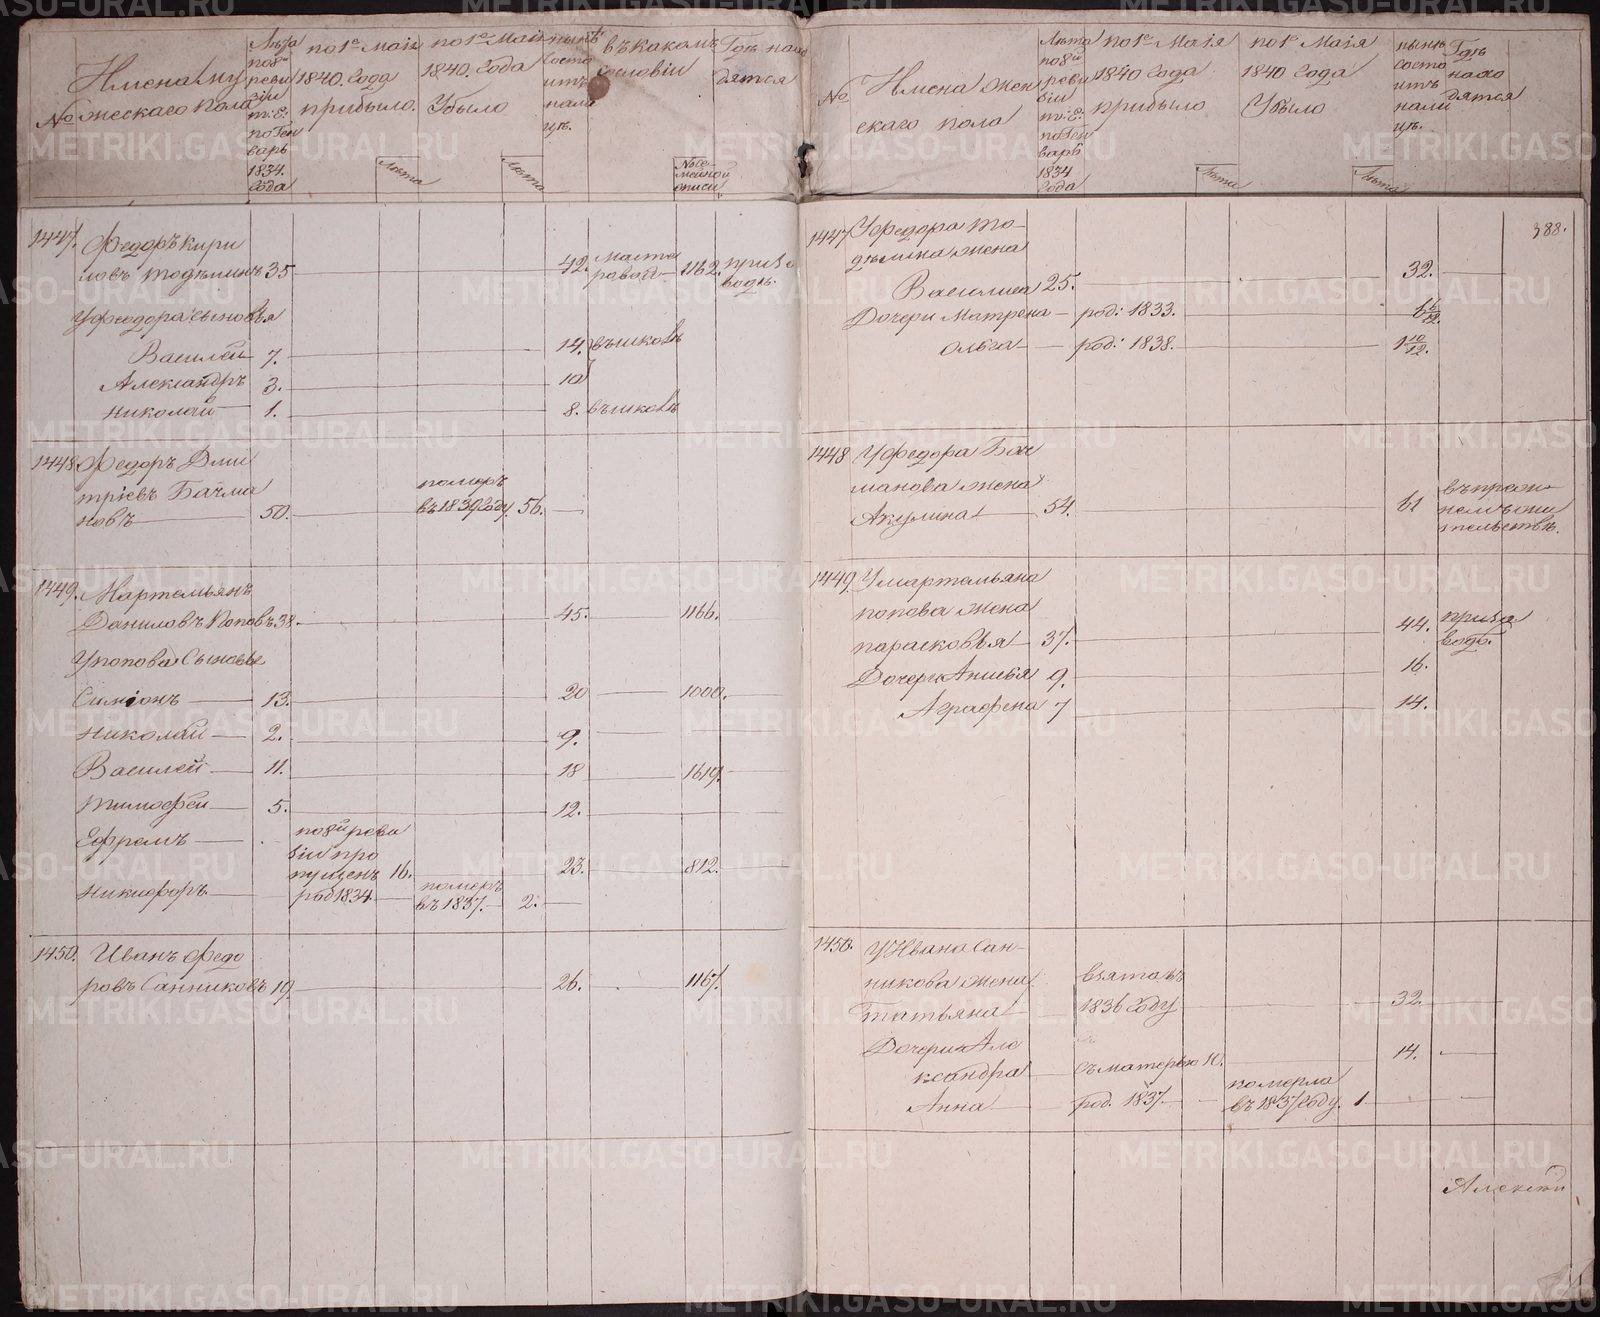 №
Имена му
жескаго пола
Лѣта
по 8й
реви
зіи
т: е:
по Ген
варь
1834.
Года
по 1е Маія
1840. Года
прибыло.
Лѣта
по 1е Маія
1840. Года
Убыло
Лѣта
нынѣ
состо
итъ
нали
цѣ.
въ какомъ
сословіи
№ се-
мейной
описи
Гдѣ нахо
дятся
1447.
Федоръ Кири
ловъ 35 42. 1162.
масте
ровой
при за
водѣ.
У Федора сыновья
Василей 7. 14. въ школѣ
Александръ 3. 10
Николай 1. 8. въ школѣ
1448
Федоръ Дми
тріевъ Бачма
новъ 50.
померъ
въ 1839 Году. 56.
1449.
Мартемьянъ
Даниловъ Поповъ 38. 45. 1166.
У Попова Сыновье
Симіонъ 13. 20 1000.
Николай 2. 9.
Василей 11. 18 1619.
Тимофей 5. 12.
Ефремъ
по 8й реви
зіи про
пущенъ 16. 23. 812.
Никифоръ род 1834
померъ
въ 1837. 2.
1450.
Иванъ Федо
ровъ Санниковъ 19. 26. 1167.
№
Имена жен
скаго пола
Лѣта
по 8й
реви
зіи
т: е:
по Ген
варь
1834
Года
по 1е Маія
1840 Года
прибыло
Лѣта
по 1е Маія
1840 Года
Убыло
Лѣта
нынѣ
состо
итъ
нали
цѣ.
Гдѣ
нахо
дятся
388.
1447
У Федора
жена
Василиса 25. 32.
Дочери Матрена род: 1833.
Ольга род: 1838. 1 10/12.
1448
У Федора Бач
манова жена
Акулина 54. 61
въ преж
нем жи
тельствѣ.
1449.
У Мартемьяна
Попова жена
Парасковья 37. 44.
при за
водѣ.
Дочери Анисья 9. 16.
Аграфена 7 14.
1450.
У Ивана Сан-
никова жена
Татьяна
взята въ
1836 Году 32.
Дочери Але
ксандра съ матерью 10. 14.
Анна род. 1837.
померла
въ 1837 Году. 1
Алексѣй
METRIKI.GASO-URAL.RU